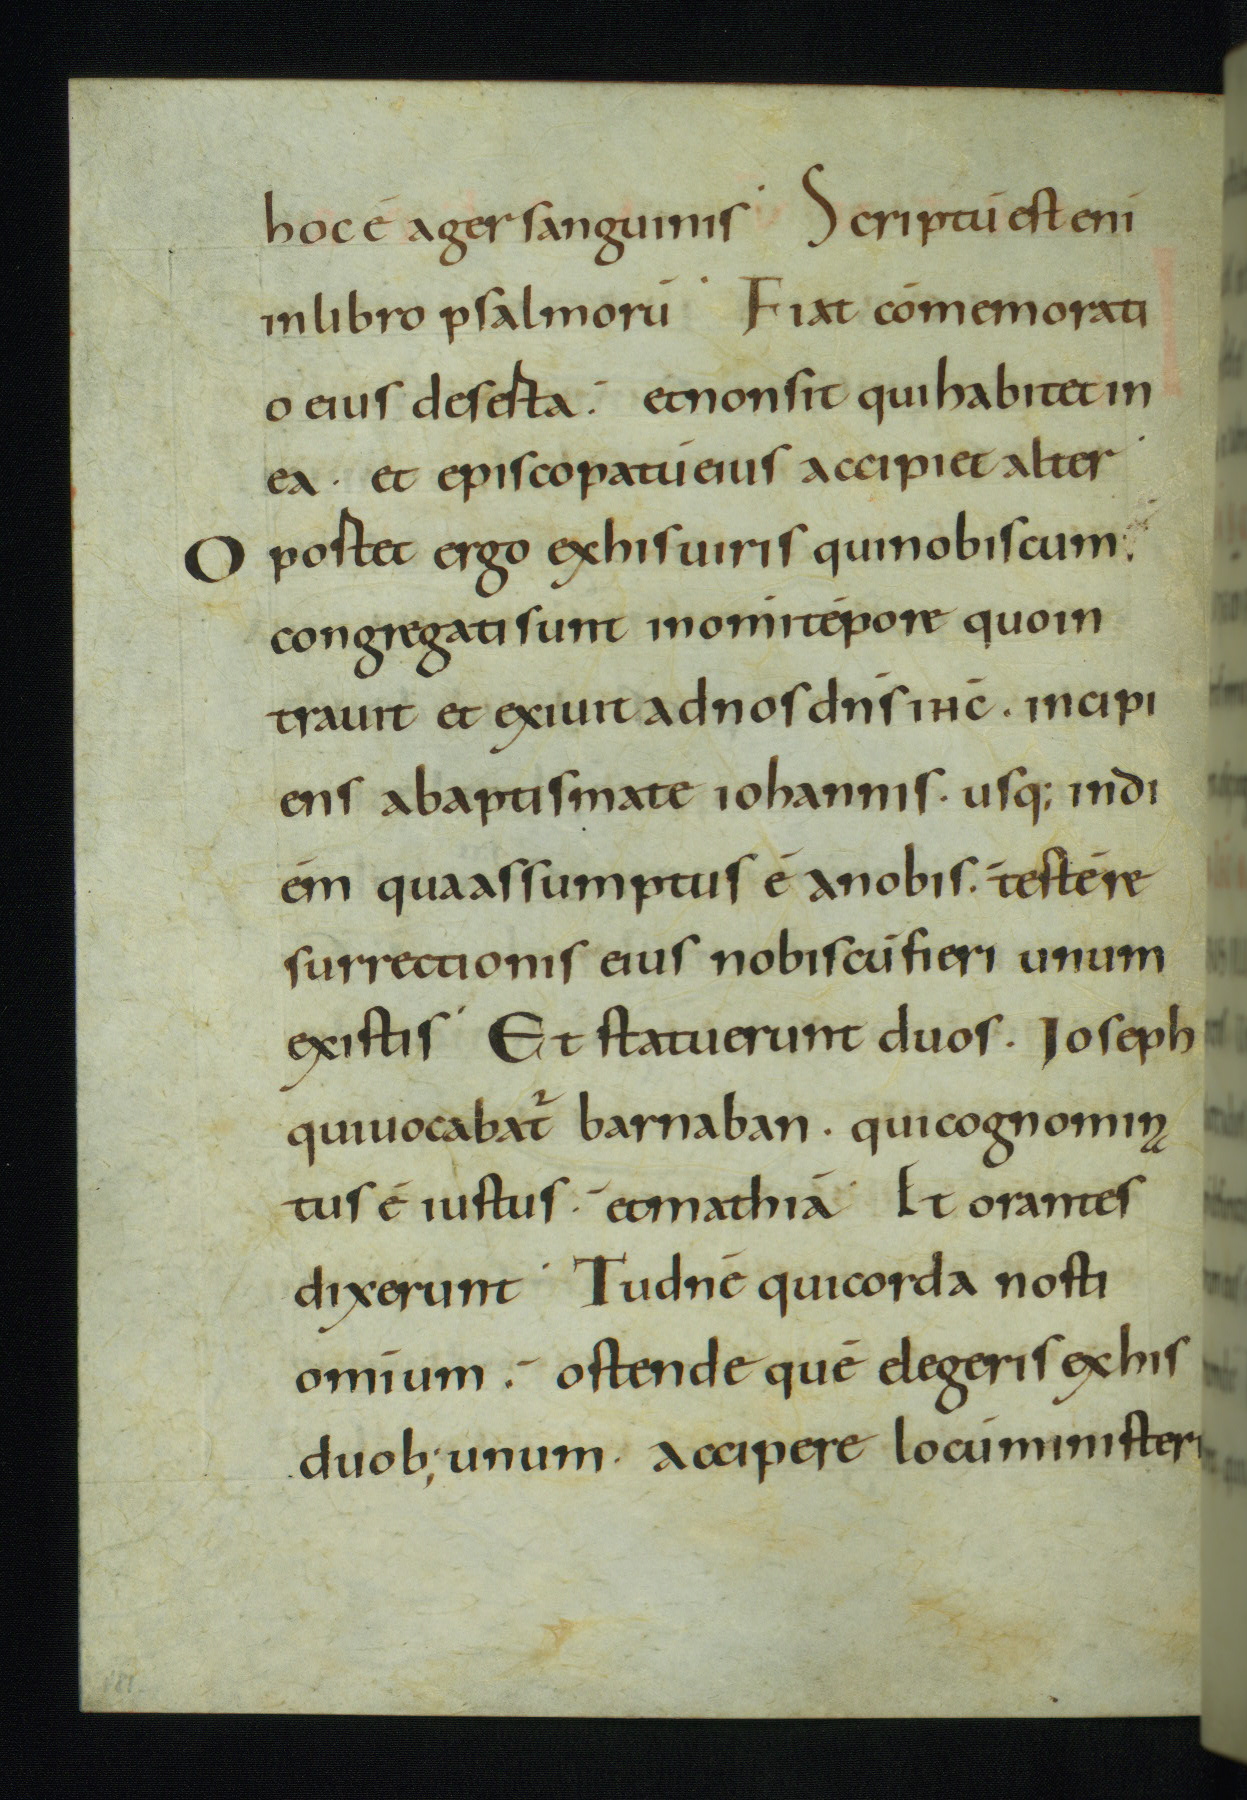 hoc ē ager sanguinis· Scriptū est eni
in libro psalmorū· Fiat cōmemorati
o eius deserta: et non sit qui habitet in
ea· et episcopatū eius accipiet alter·
Oportet ergo ex his uiris qui nobiscum:
congregati sunt in omītēpore quo in
trauit et exiuit ad nos dn̄s ihc̄· incipi
ens abaptismate iohannis· usq; in di
ēm qua assumptus ē a nobis· testē re
surrectionis eius nobiscū fieri unum
ex istis· Et statuerunt duos· Joseph
qui uocabat᷑ barnaban· qui cognomina
tus ē iustus· et mathiā· Et orantes
dixerunt· Tu dn̄e qui corda nosti
om̄ium· ostende quē elegeris ex his
duob; unum· accipere locū ministeri